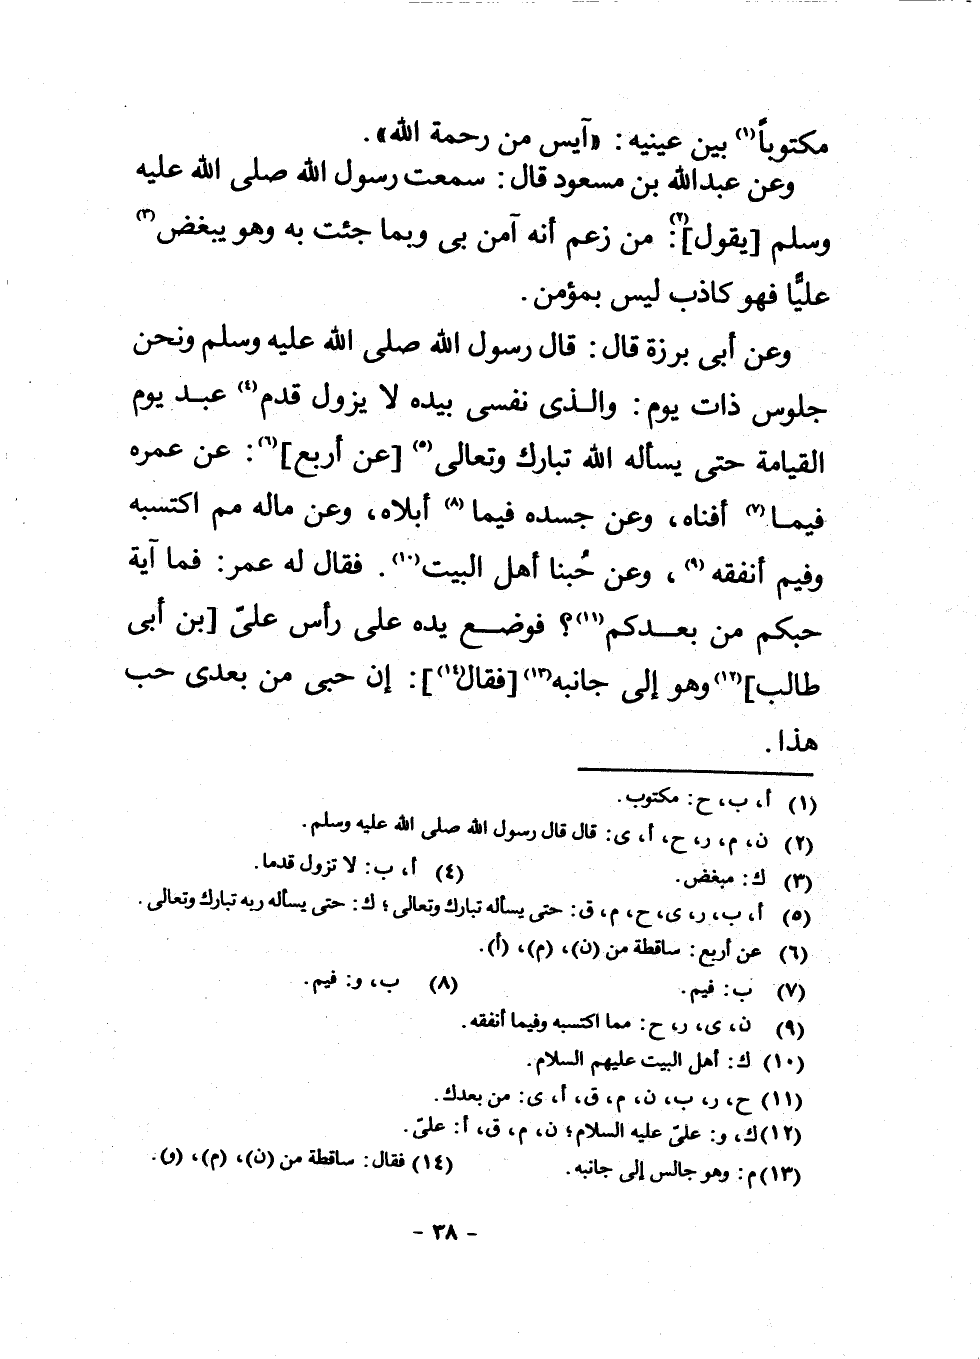 مكتوباً(١) بين عينيه: «آيس من رحمة الله».
وعن عبدالله بن مسعود قال: سمعت رسول الله صلى الله عليه
وسلم [يقول](٢): من زعم أنه آمن بى وبما جئت به وهو يبغض(٣)
عليًّا فهو كاذب ليس بمؤمن.
وعن أبى برزة قال: قال رسول الله صلى الله عليه وسلم ونحن
جلوس ذات يوم: والـذى نفسى بيده لا يزول قدم(٤) عبـد يوم
القيامة حتى يسأله الله تبارك وتعالى(٥) [عن أربع](٦): عن عمره
فيمـا(٧) أفناه، وعن جسده فيما(٨) أبلاه، وعن ماله مم اكتسبه
وفيم أنفقه(٩)، وعن حُبنا أهل البيت(١٠). فقال له عمر: فما آية
حبكم من بعـــدكم(١١)؟ فوضــع يده على رأس علىّ [بن أبى
طالب](١٢) وهو إلى جانبه(١٣) [فقال(١٤)]: إن حبى من بعدى حب
هذا.
(١) أ، ب، ح: مكتوب.
(٢) ن، م، ر، ح، أ، ى: قال قال رسول الله صلى الله عليه وسلم.
(٣) ك: مبغض. (٤) أ، ب: لا تزول قدما.
(٥) أ، ب، ر، ى، ح، م، ق: حتى يسأله تبارك وتعالى؛ ك: حتى يسأله ربه تبارك وتعالى.
(٦) عن أربع: ساقطة من (ن)، (م)، (أ).
(٧) ب: فيم. (٨) ب، و: فيم.
(٩) ن، ى، ر، ح: مما اكتسبه وفيما أنفقه.
(١٠) ك: أهل البيت عليهم السلام.
(١١) ح، ر، ب، ن، م، ق، أ، ى: من بعدك.
(١٢) ك، و: علىّ عليه السلام؛ ن، م، ق، أ: علىّ.
(١٣) م: وهو جالس إلى جانبه. (١٤) فقال: ساقطة من (ن)، (م)، (و).
- ٣٨ -